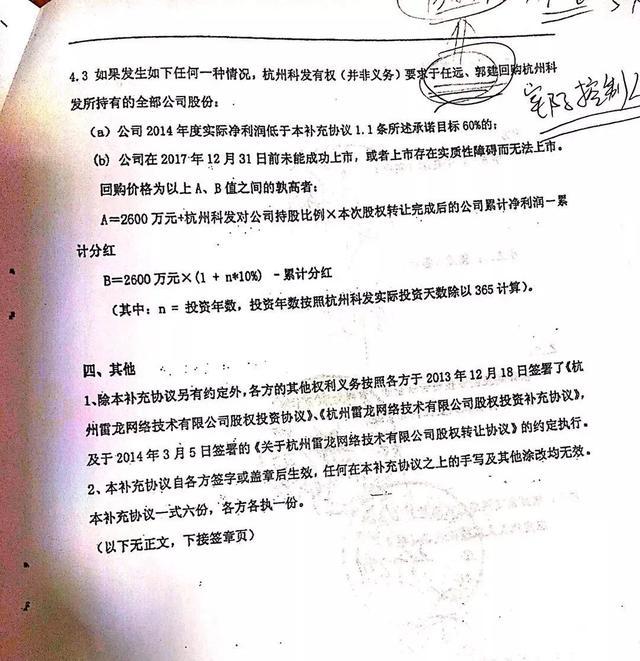 4.3 如果发生如下任何一种情况，杭州科发有权（并非义务）要求于任远、郭建回购杭州科
发所持有的全部公司股份：
实际控制人
（a）公司 2014 年度实际净利润低于本补充协议 1.1 条所述承诺目标 60%的；
(b) 公司在 2017 年 12 月 31 日前未能成功上市，或者上市存在实质性障碍而无法上市。
回购价格为以上 A、B 值之间的孰高者：
A＝2600 万元+杭州科发对公司持股比例×本次股权转让完成后的公司累计净利润－累
计分红
B＝2600 万元×(1 + n*10%) －累计分红
（其中：n = 投资年数，投资年数按照杭州科发实际投资天数除以 365 计算）。
四、其他
1、除本补充协议另有约定外，各方的其他权利义务按照各方于 2013 年 12 月 18 日签署了《杭
州雷龙网络技术有限公司股权投资协议》、《杭州雷龙网络技术有限公司股权投资补充协议》，
及于 2014 年 3 月 5 日签署的《关于杭州雷龙网络技术有限公司股权转让协议》的约定执行。
2、本补充协议自各方签字或盖章后生效，任何在本补充协议之上的手写及其他涂改均无效。
本补充协议一式六份，各方各执一份。
（以下无正文，下接签章页）